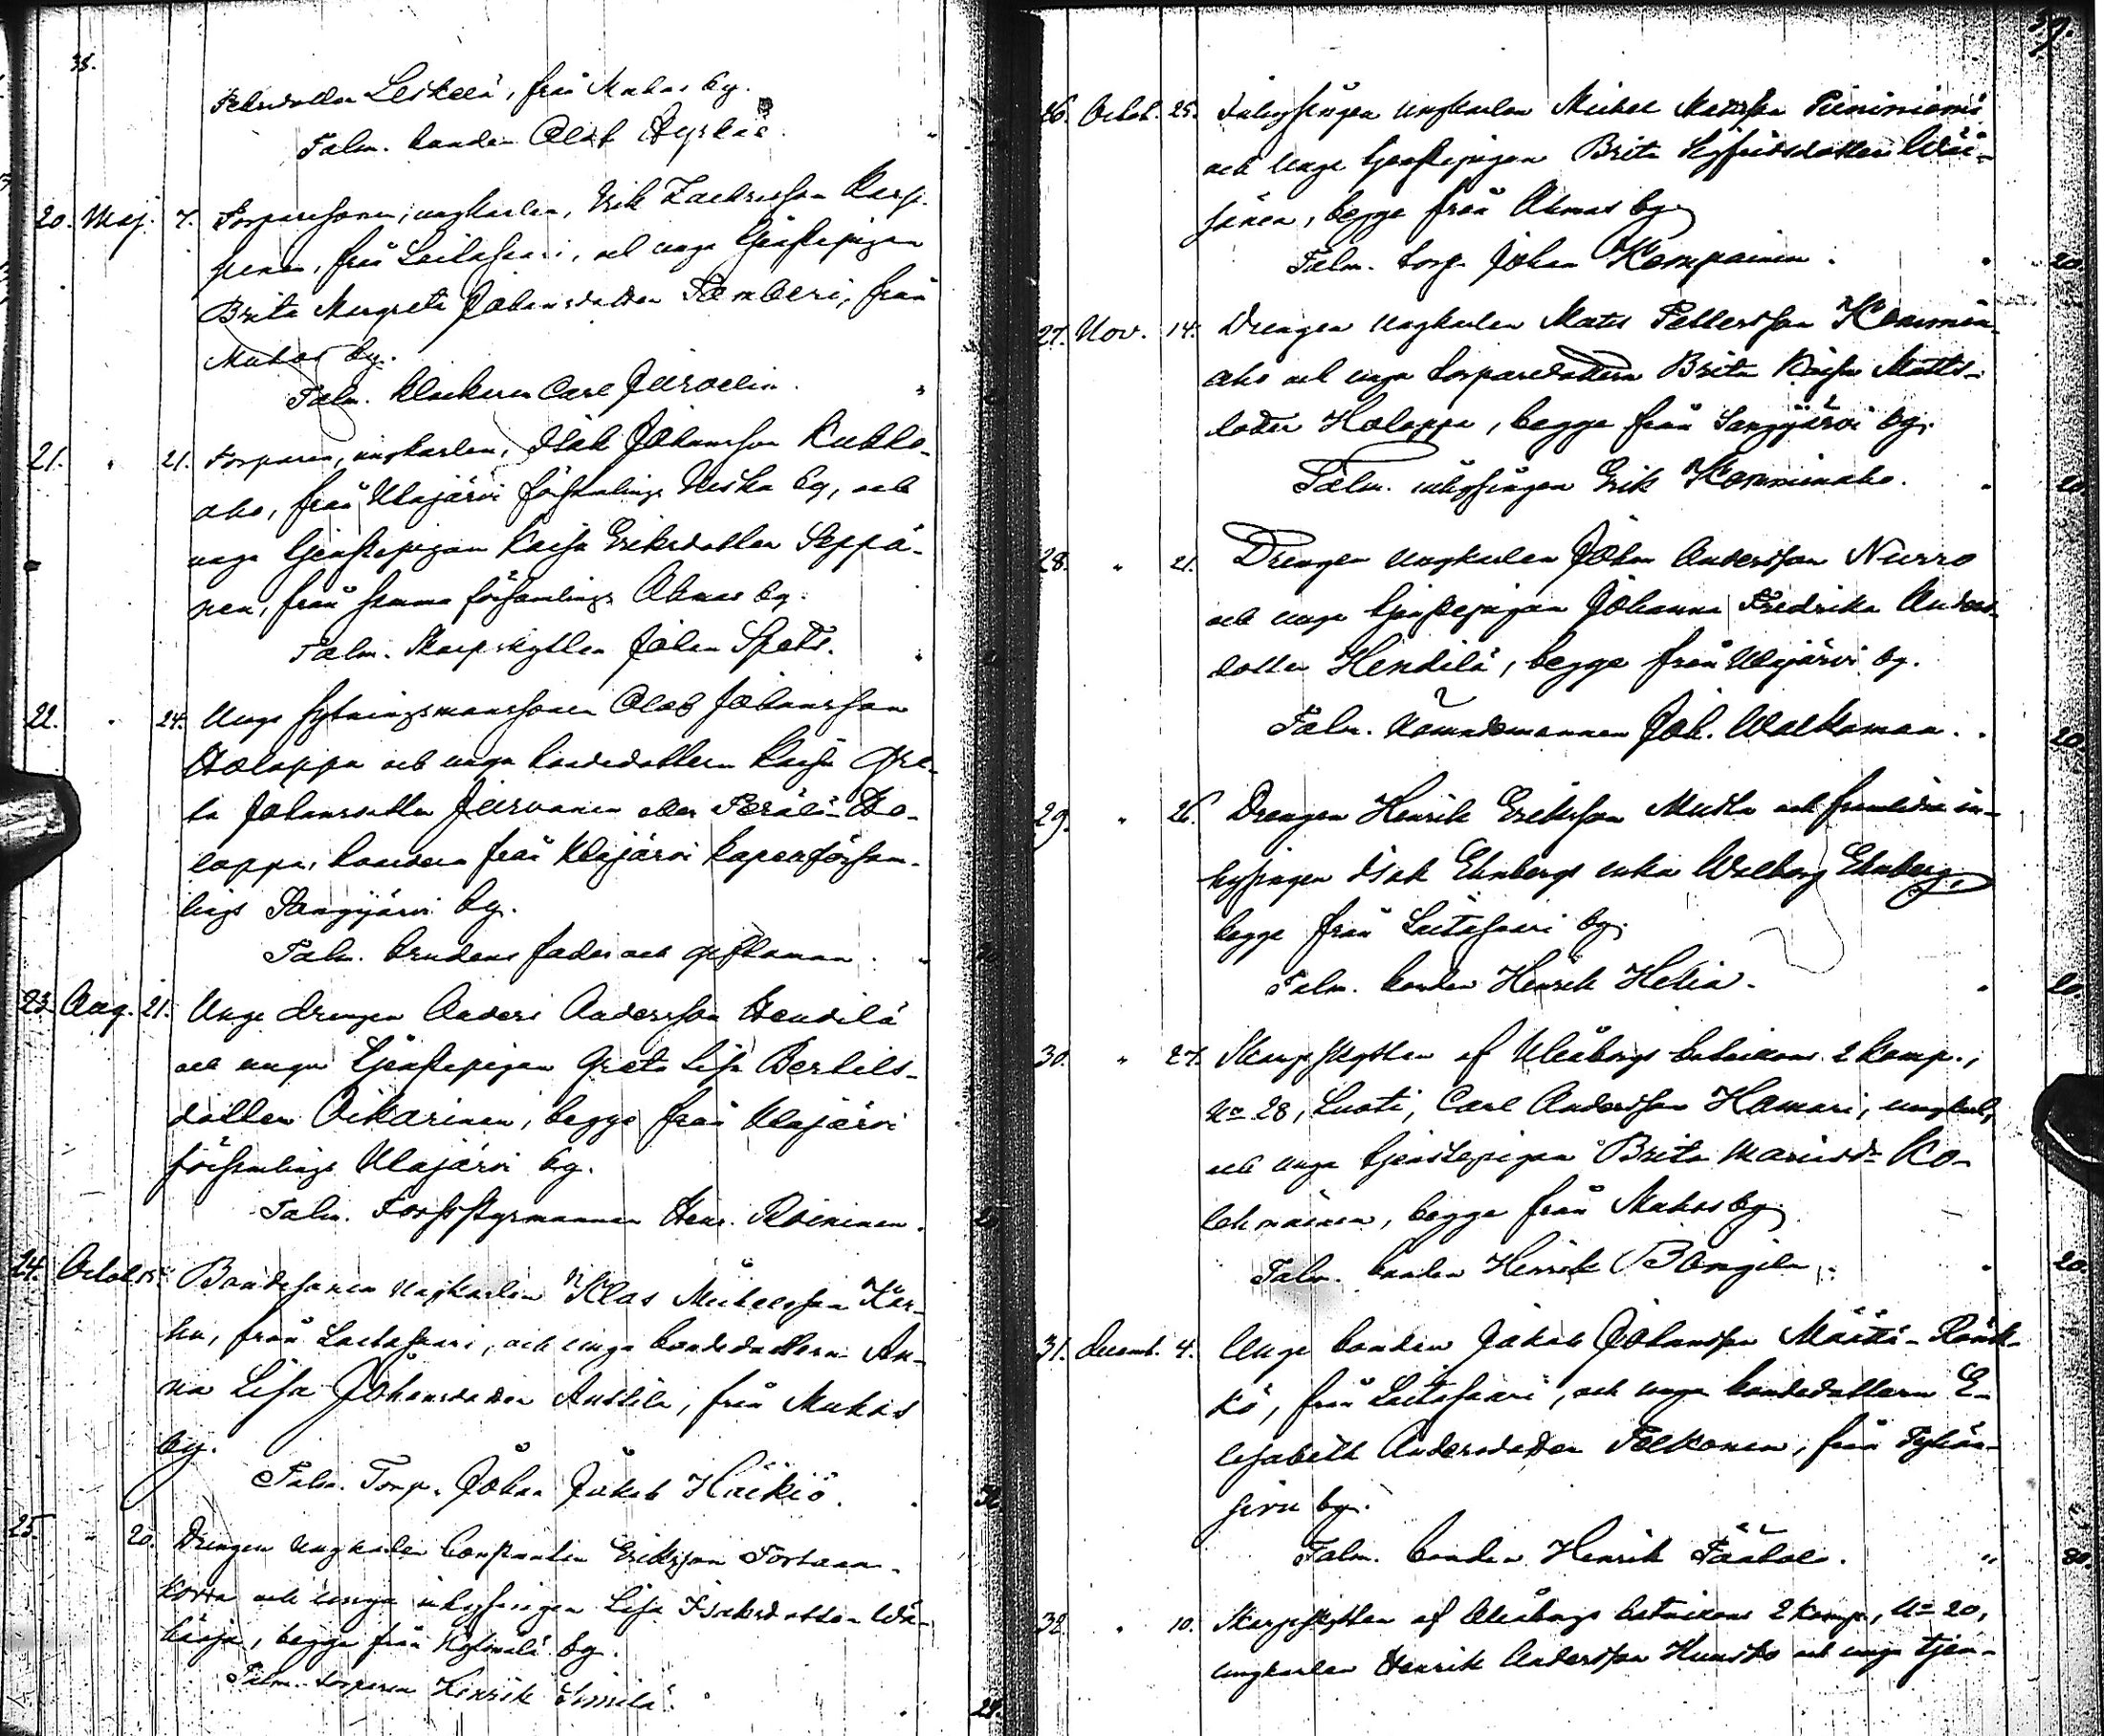 36.
Petersdotter Leskelä, från Muhos by.
Talm. bonden Olof Hyrkäs.
20. Maj. 7. Torparesonen, ungkarlen, Erik Zachrisson Karp-
pinen, från Laitasaari, och unga tjenstepigan
Brita Margreta Johansdotter Tamberi, från
Muhos by.
Talm. klockaren Carl Jurvelin.
21. " 21. Torparen, ungkarlen, Isak Johansson Kukko-
aho, från Ulajärvi församlings Niska by, och
unga tjenstepigan Kaisa Eriksdotter Seppä-
nen, från samma församlings Ahmas by.
Talm. Skarpskytten Johan Spets.
22. " 24. Unge sytningsmanssonen Olof Johansson
Holappa och unga bondedottern Kaisa Gre-
ta Johansdotter Jurvanen eller Perälä-Ho-
lappa, bonden från Ulajärvi kapellförsam-
lings Sangijärvi by.
Talm. brudens fader och giftoman.
23. Aug. 21. Unge drengen Anders Andersson Hendilä
och unga tjenstepigan Greta Lisa Bertils-
dotter Oikarinen, begge från Ulajärvi
församlings Ulajärvi by.
Talm. Forsstyrmannen Henr. Roininen. 20
24. Octob. 15. Bondesonen ungkarlen Klas Michelsson Kar-
hu, från Laitasaari, och unga bondedottern An-
na Lisa Johansdotter Anttila, från Muhos
by.
Talm. Torp. Johan Jakob Häikiö.
25. " 20. Drengen ungkarlen Constantin Eriksson Tortaan-
korva och unga inhysingen Lisa Isaksdotter Wä-
häoja, begge från Kylmälä by.
Talm. torparen Henrik Similä.
37.
26. Octob. 25. Inhysingen ungkarlen Michel Mattsson Pieniniemi
och unga tjenstepigan Brita Sigfridsdotter Wäi-
sänen, begge från Ahmas by.
Talm. torp. Johan Kompainen. 20
27. Nov. 14. Drengen ungkarlen Mats Pettersson Kemmin-
aho och unga torparedottern Brita Kaisa Matts-
dotter Holappa, begge från Sangijärvi by.
Talm. inhysingen Erik Komminaho. 20
28. " 21. Drengen ungkarlen Johan Andersson Nurro
och unga tjenstepigan Johanna Fredrika Anders-
dotter Hendilä, begge från Ulajärvi by.
Talm. Nämndemannen Joh. Walkaman. 20
29. " 26. Drengen Henrik Eriksson Musta och framlidne in-
hysingen Isak Ehnbergs enka Walborg Ehnberg,
begge från Laitasaari by.
Talm. bonden Henrik Helia. 20
30. " 27. Skarpskytten af Uleåborgs bataillons 2 komp.,
No 28, Luoti, Carl Andersson Hamari, ungkarl,
och unga tjenstepigan Brita Mariasdr Ko-
lehmainen, begge från Muhos by.
Talm. bonden Henrik Bongila. 20.
31. Decemb. 4. Unge bonden Jakob Johansson Määttä-Rönk-
kö, från Laitasaari, och unga bondedottern E-
lisabeth Andersdotter Pelkonen, från Tyhän-
sivu by.
Talm. bonden Henrik Päätalo. " 20.
32. " 10. Skarpskytten af Uleåborgs bataillons 2 komp., No 20,
ungkarlen Henrik Andersson Huusko och unga tjen-